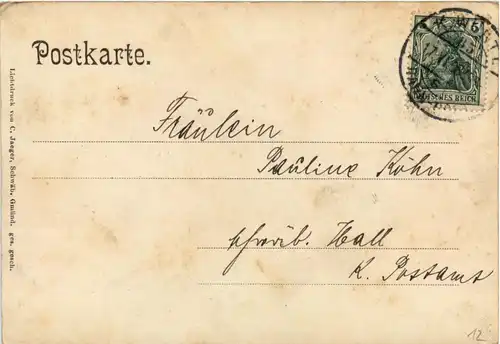 Postkarte.
Fräulein
Pauline Köhn
schwäb. Hall
K. Postamt
DEUTSCHES REICH
Lichtdruck von C. Jaeger, Schwäb. Gmünd. ges. gesch.
12